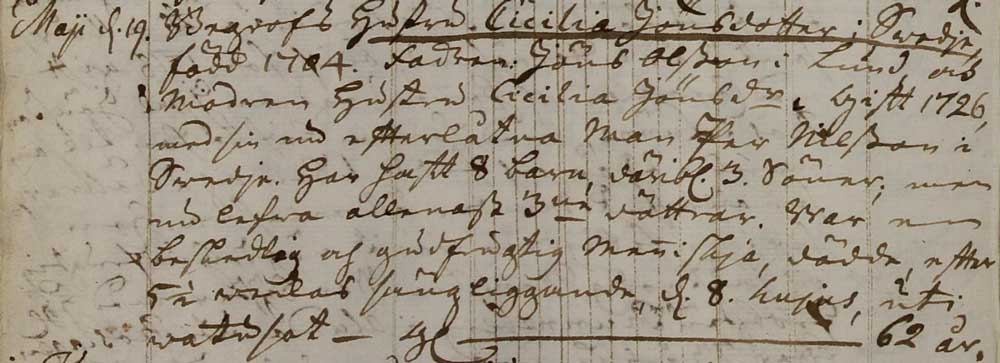 Maji d. 19. Begrofs Hustru Cicilia Jönsdotter i Swedje,
född 1704. Fadren Jöns Olsson i Lund, och
Modren Hustru Cicilia Jönsdr. Gift 1726,
med sin nu efterlåtna Man Per Nilsson i
Swedje. Har haft 8 barn, däribl. 3 Söner, men
nu lefwa allenast 3ne döttrar. War en
beskedlig och gudfrugtig Menniskja, dödde, efter
5 i weckas siungliggande, d. 8. hujus, uti
watusot — 62 år.